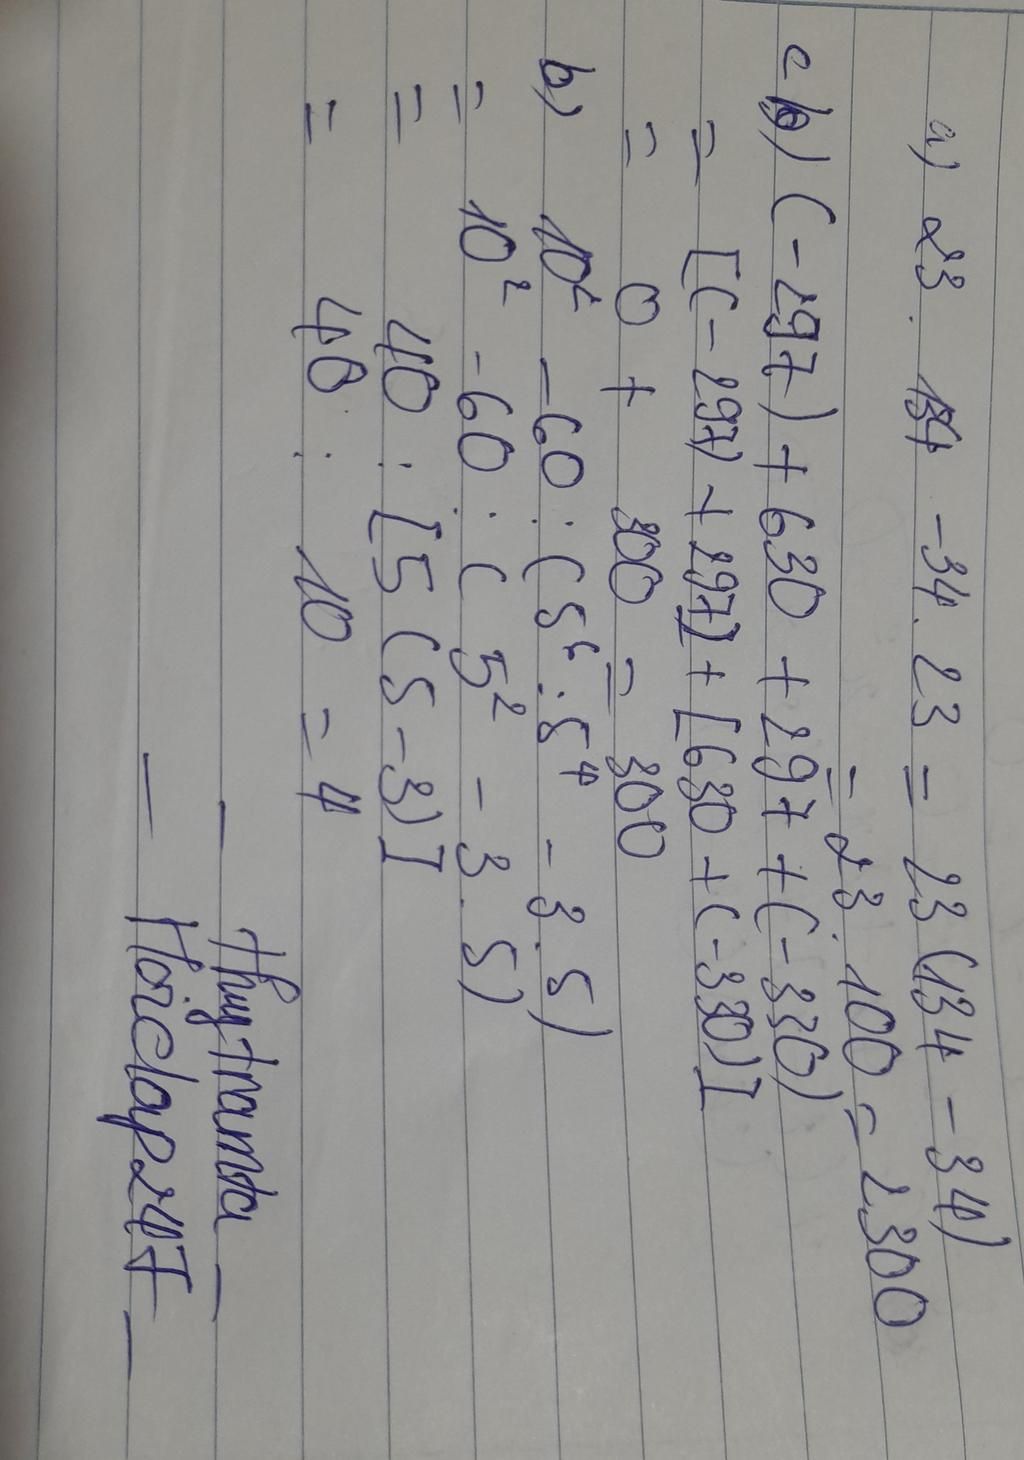 a) 23 . 134 - 34 . 23 = 23 (134 - 34)
= 23 . 100 = 2300
c) (-297) + 630 + 297 + (-330)
= [(-297) + 297] + [630 + (-330)]
= 0 + 300 = 300
b) 10² - 60 : (5⁶ : 5⁴ - 3 . 5)
= 10² - 60 : (5² - 3 . 5)
= 40 : [5 (5 - 3)]
= 40 : 10 = 4
- thuytramta -
- Hoiclap247 -